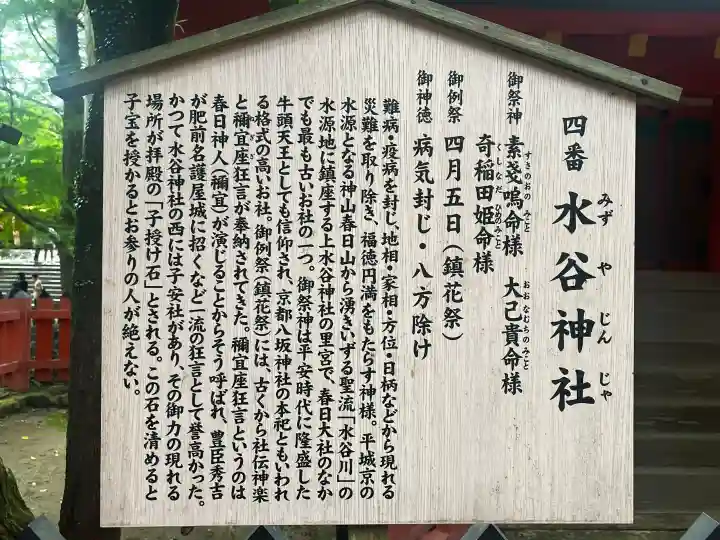 四番 水谷神社
みずやじんじゃ
御祭神 素戔嗚命様 大己貴命様
すさのおのみこと おおなむちのみこと
奇稲田姫命様
くしなだひめのみこと
御例祭 四月五日(鎮花祭)
御神徳 病気封じ・八方除け
難病・疫病を封じ、地相・家相・方位・日柄などから現れる
災難を取り除き、福徳円満をもたらす神様。平城京の
水源となる神山春日山から湧きいずる聖流「水谷川」の
水源地に鎮座する上水谷神社の里宮で、春日大社のなか
でも最も古いお社の一つ。御祭神は平安時代に隆盛した
牛頭天王としても信仰され、京都八坂神社の本祀ともいわれ
る格式の高いお社。御例祭(鎮花祭)には、古くから社伝神楽
と禰宜座狂言が奉納されてきた。禰宜座狂言というのは
ねぎ
春日神人(禰宜)が演じることからそう呼ばれ、豊臣秀吉
が肥前名護屋城に招くなど一流の狂言として誉高かった。
かつて水谷神社の西には子安社があり、その御力の現れる
場所が拝殿の「子授け石」とされる。この石を清めると
子宝を授かるとお参りの人が絶えない。